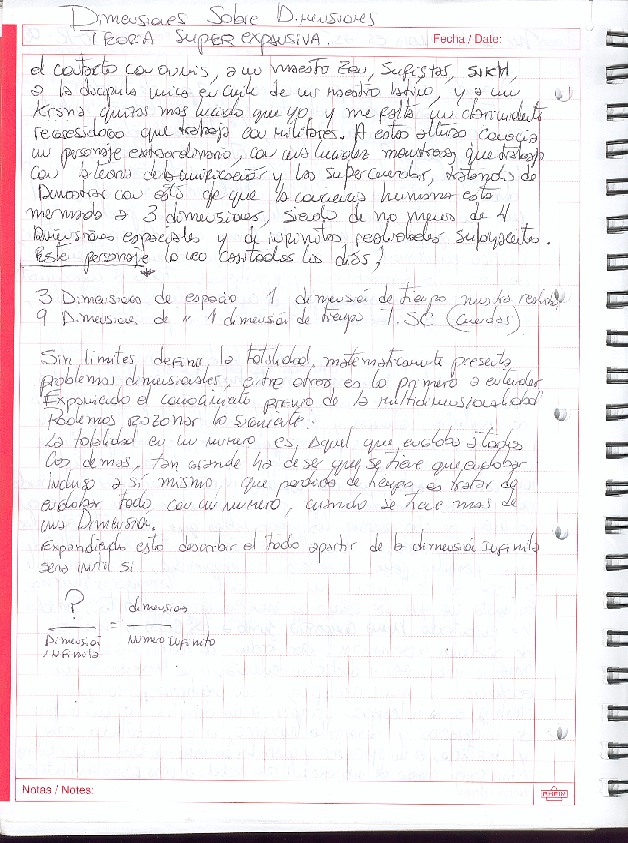 Dimensiones Sobre Dimensiones
TEORIA SUPER EXPANSIVA.
Fecha / Date:
el contacto con ovnis, a un maestro Zen, Sufistas, SIKH,
a la discipula unica en Chile de un maestro , y a un
Krsna quizas mas lucido que yo, y me falta un clarividente
que trabaja con militares. A estas alturas conocia
un personaje extraordinario, con una lucidez monstruosa que trabaja
con la teoria de la unificación y las Supercuerdas, tratando de
Demostrar con esto de que la conciencia humana esta
mermada a 3 dimensiones, siendo de no menos de 4
Dimensiones espaciales y de infinitas realidades subyacentes.
Este personaje lo veo casi todos los días!
3 Dimensiones de espacio 1 dimensión de tiempo nuestra realidad
9 Dimensiones de " 1 dimensión de tiempo T.SC (Cuerdas)
Sin limites definir la totalidad, matematicamente presenta
problemas dimensionales, entre otros es lo primero a entender
Exponiendo el conocimiento previo de la multidimensionalidad
Podemos razonar lo siguiente:
La totalidad en un numero es, aquel que engloba a todos
los demas, tan grande ha de ser que se tiene que englobar
incluso a sí mismo, que perdida de tiempo es tratar de
englobar todo con un numero, cuando se tiene mas de
una Dimension.
Expandiendo esto describir el todo a partir de la dimensión infinita
sera inutil si
? = dimension
Dimensión Numero Infinito
Infinita
Notas / Notes:
RHEIN